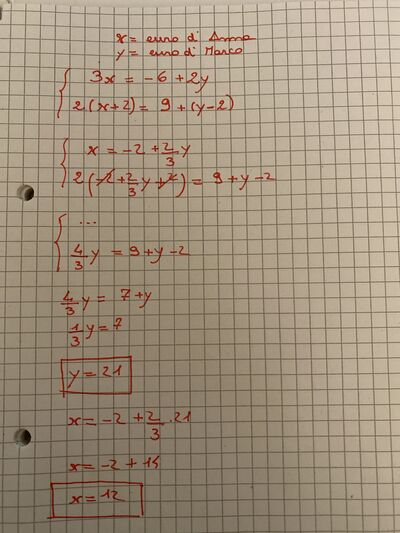 x = euro d' Anna
y = euro d' Marco
3x = -6 + 2y
2(x+2) = 9 + (y-2)
x = -2 + 2/3 y
2(-2 + 2/3 y + 2) = 9 + y - 2
...
4/3 y = 9 + y - 2
4/3 y = 7 + y
1/3 y = 7
y = 21
x = -2 + 2/3 · 21
x = -2 + 14
x = 12